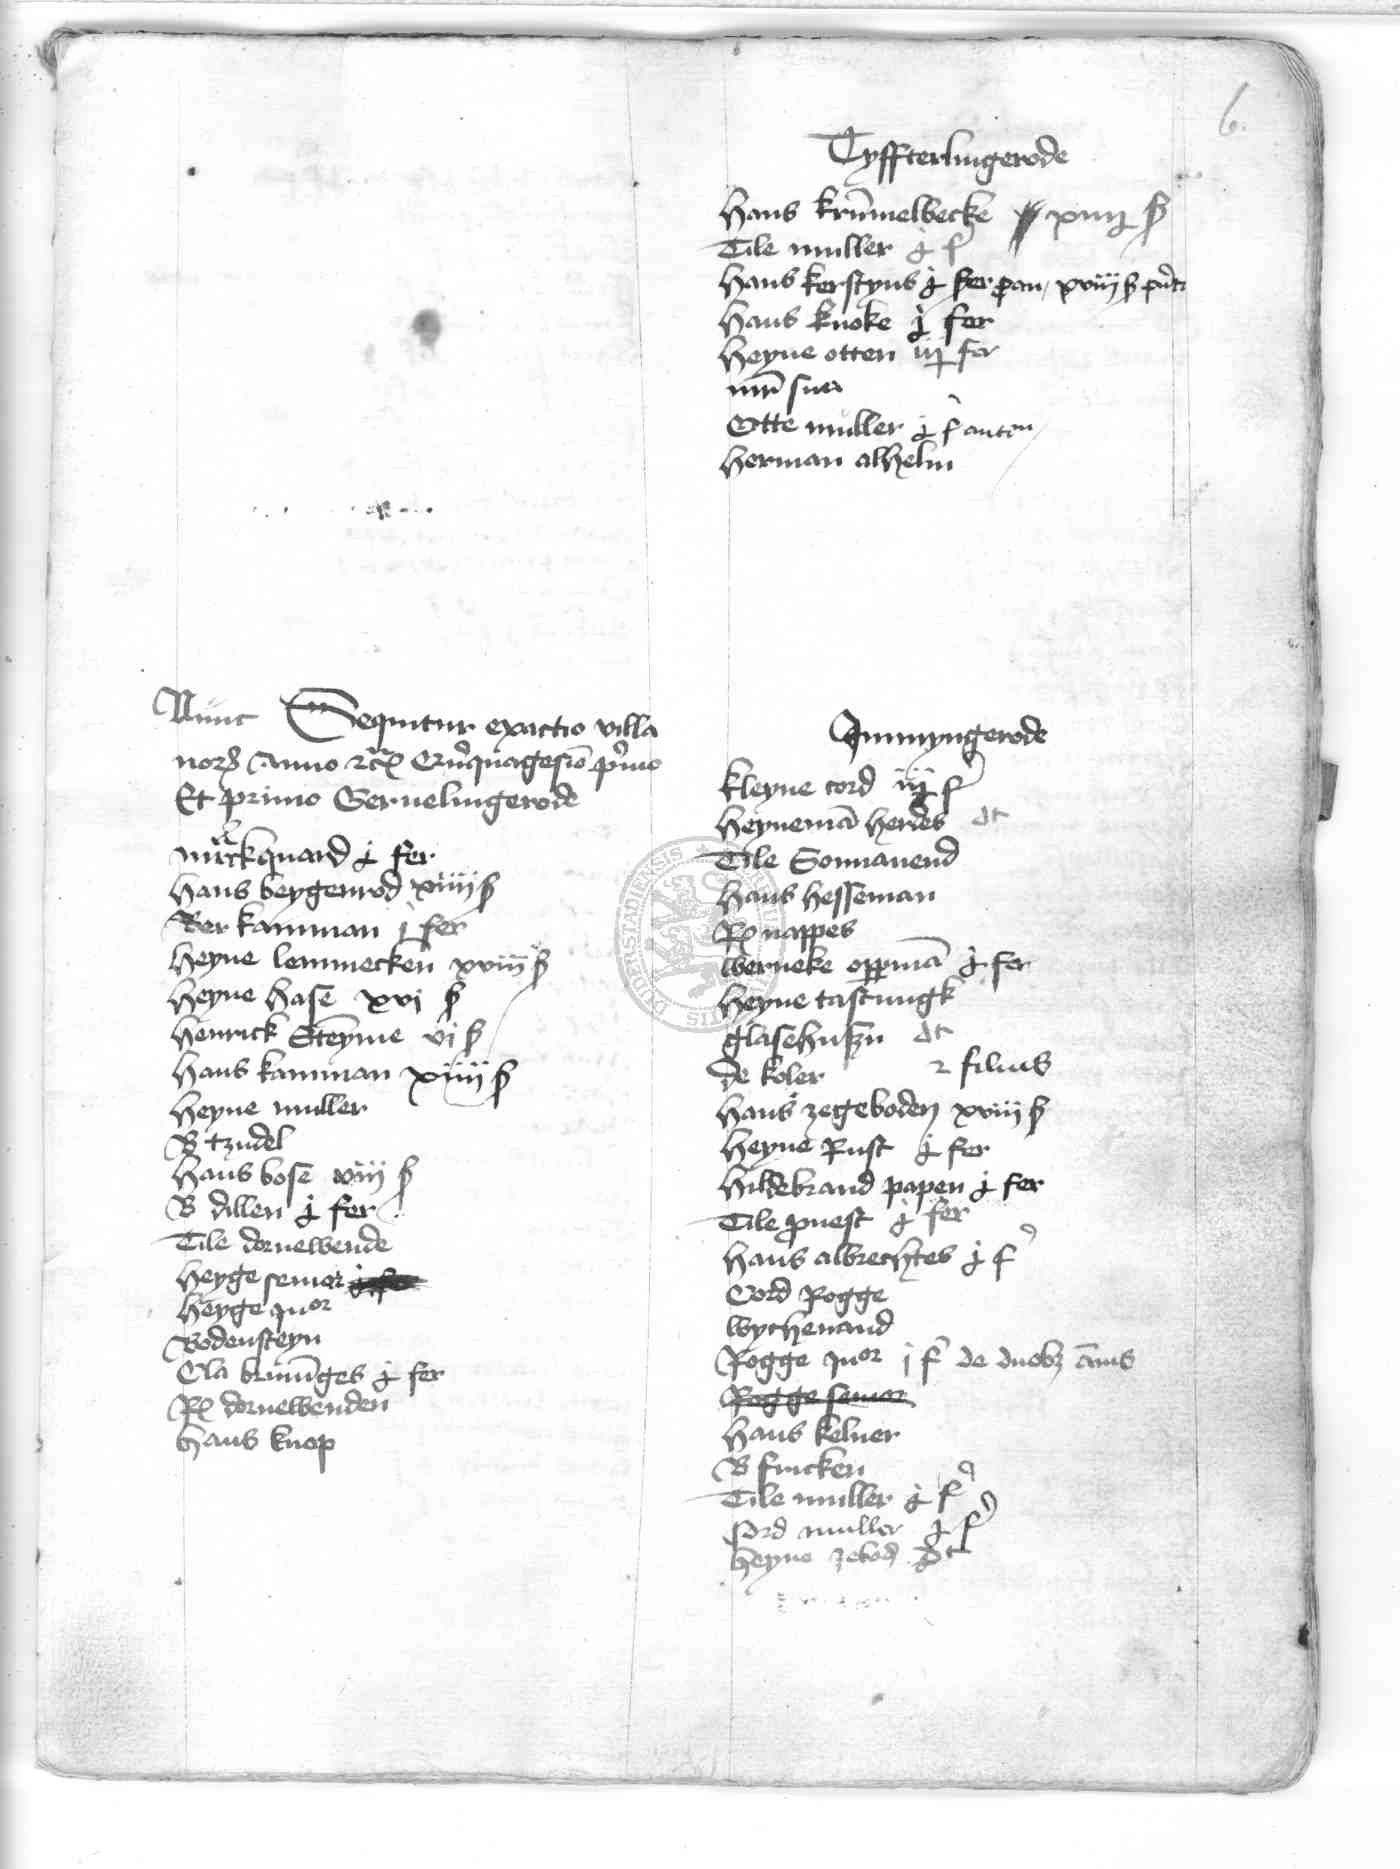 6.
Tyffterlingerode
Hans krūmelbecke xviiij ß
Tile muller j f
Hans kerstyns j fer pan, xviiij ß
Hans knoke j fer
Heyne otten iij fer
Otte muller j f anton
Herman alhelm
Nunc Sequitur exactio villa
norꝝ Anno Quīquagesīo pⁱmo
Et primo Gervelingerode
marckquard j fer
Hans beygenrod xviiij ß
Ber kamman j fer
Heyne lemmecken xviiij ß
Heyne hase xvi ß
Henrick Steyme vi ß
Hans kamman xviiij ß
Heyne muller
B tzudel
Hans bose viij ß
B dillen j fer
Tile dornewende
Heyge senior
Heyge iuor
Bodensteyn
Cla brunīges j fer
dornewenden
Hans knop
Jmmyngerode
kleyne cord iij f
Heynemā herdes dt
Tile Sonnavend
Hans hesseman
nappes
werneke oppermā j fer
Heyne tastungk
glasehuszn dt
de koler 2 filius
Hans zegeboden xviiij ß
Heyne Rust j fer
Hildebrand papen j fer
Tile pnest j fer
Hans albrechtes j f
Cord Rogge
wychenand
Rogge iuor j f de duobꝫ ānis
Rogge senior
Hans kelner
B fricken
Tile muller j f
Cord muller j f
Heyne zebod dt
SIGILLUM DUDERSTADIENSIS